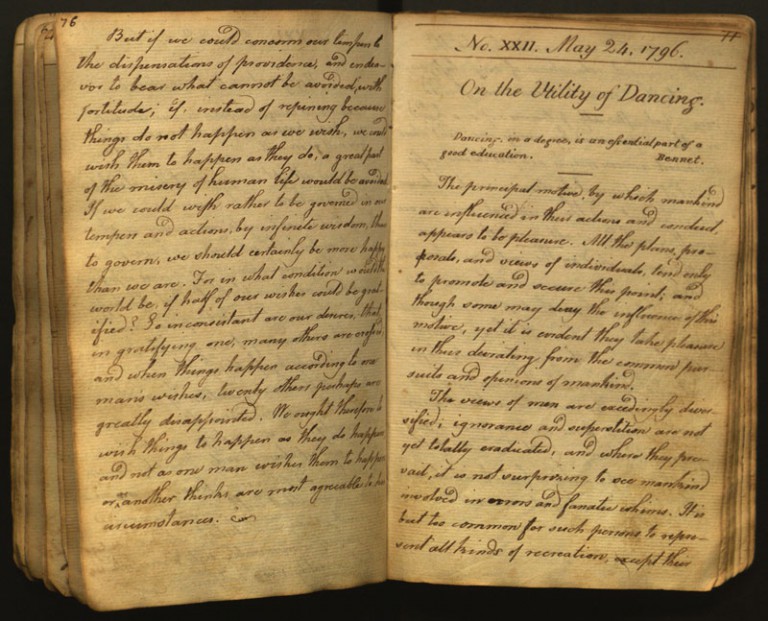 76
But if we could conform our tempers to
the dispensations of providence, and endea-
vor to bear what cannot be avoided, with
fortitude; if, instead of repining because
things do not happen as we wish, we could
wish them to happen as they do; a great part
of the misery of human life would be avoided.
If we could wish rather to be governed in our
tempers and actions, by infinite wisdom, than
to govern, we should certainly be more happy
than we are. For in what condition would the
world be, if half of our wishes could be grat-
ified? So inconsistant are our desires, that
in gratifying one, many others are crossed,
and when things happen according to one
mans wishes, twenty others perhaps are
greatly disappointed. We ought therefore to
wish things to happen as they do happen
and not as one man wishes them to happen
or, as another thinks are most agreeable to his
circumstances.
77
No. XXII. May 24, 1796.
On the Utility of Dancing.
Dancing, in a degree, is an essential part of a
good education. Bennet.
The principal motive, by which mankind
are influenced in their actions and conduct,
appears to be pleasure. All the plans, pro-
posals, and views of individuals, tend only
to promote and secure this point; and
though some may deny the influence of this
motive, yet it is evident they take pleasure
in thus deviating from the common pur-
suits and opinions of mankind.
The views of men are exceedingly diver-
sified; ignorance and superstition are not
yet totally eradicated; and where they pre-
vail, it is not surprising to see mankind
involved in errors and fanatic whims. It is
but too common for such persons to repre-
sent all kinds of recreation, except their